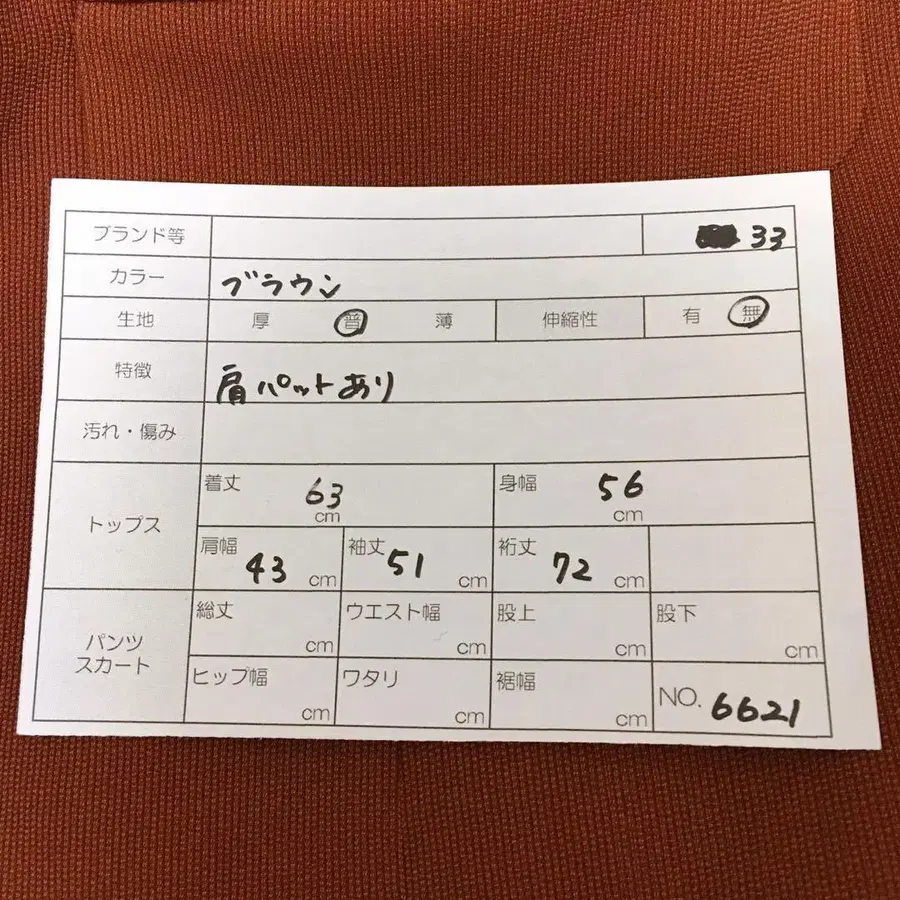 ブランド等 33
カラー ブラウン
生地 厚 普 薄 伸縮性 有 無
特徴 肩パットあり
汚れ・傷み
トップス
着丈 63 cm 身幅 56 cm
肩幅 43 cm 袖丈 51 cm 裄丈 72 cm
パンツ
スカート
総丈 cm ウエスト幅 cm 股上 cm 股下 cm
ヒップ幅 cm ワタリ cm 裾幅 cm NO. 6621